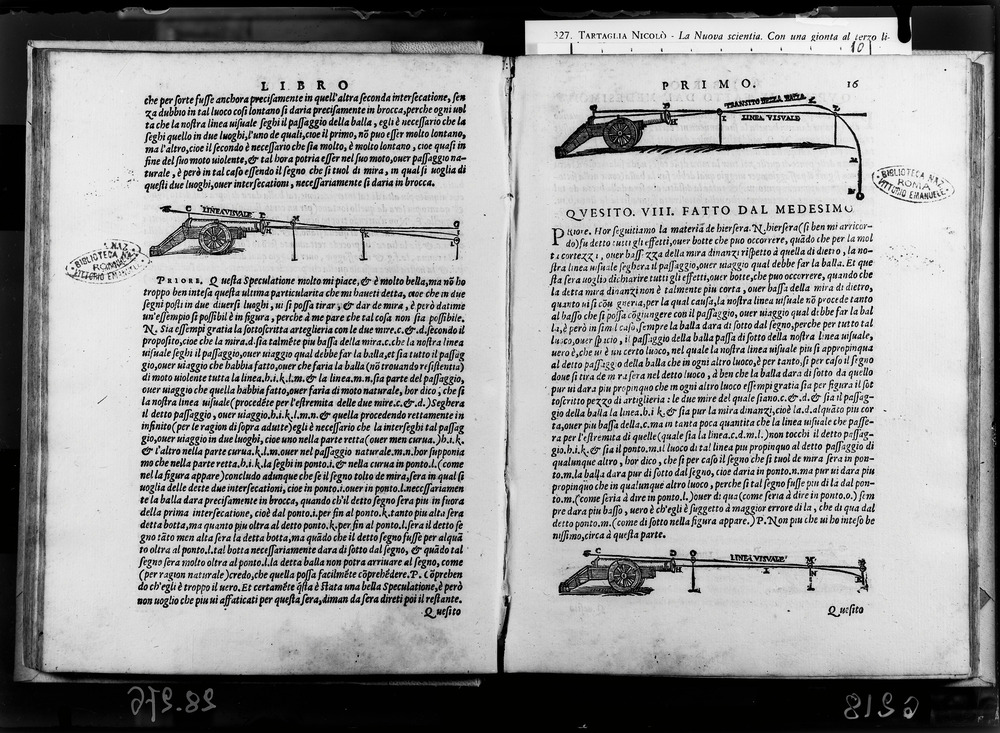 327. TARTAGLIA NICOLÒ - La Nuova scientia. Con una gionta al terzo li-
10
LIBRO
che per sorte fusse anchora precisamente in quell'altra seconda intersecatione, sen
za dubbio in tal luoco cosi lontano si daria precisamente in brocca, perche ogni uol
ta che la nostra linea uisuale seghi il passaggio della balla, egli è necessario che la
seghi quello in due luoghi, l'uno de quali, cioe il primo, nō può esser molto lontano,
ma l'altro, cioe il secondo è necessario che sia molto, è molto lontano, cioe quasi in
fine del suo moto uiolente, & tal hora potria esser nel suo moto, ouer passaggio na-
turale, è però in tal caso essendo il segno che si tuol di mira, in qual si uoglia di
questi due luoghi, ouer intersecationi, necessariamente si daria in brocca.
LINEA VISVALE
BIBLIOTECA NAZ
ROMA
VITTORIO EMANUELE
PRIORE. Questa Speculatione molto mi piace, & è molto bella, ma nō ho
troppo ben intesa questa ultima particularita che mi haueti detta, cioe che in due
segni posti in due diuersi luoghi, ui si possa tirar, & dar de mira, è però datime
un'essempio si possibil è in figura, perche à me pare che tal cosa non sia possibile.
N. Sia essempi gratia la sottoscritta arteglieria con le due mire.c.& .d.secondo il
proposito, cioe che la mira.d.sia talmēte piu bassa della mira.c.che la nostra linea
uisuale seghi il passaggio, ouer uiaggio qual debbe far la balla, et sia tutto il passag
gio, ouer uiaggio che habbia fatto, ouer che faria la balla (nō trouando resistentia)
di moto uiolente tutta la linea.h.i.k.l.m.& la linea.m.n.sia parte del passaggio,
ouer uiaggio che quella habbia fatto, ouer faria di moto naturale, hor dico, che si
la nostra linea uisuale (procedēte per l'estremita delle due mire.c.& .d.) Seghera
il detto passaggio, ouer uiaggio.h.i.k.l.m.n.& quella procedendo rettamente in
infinito (per le ragion di sopra adutte) egli è necessario che la interseghi tal passag
gio, ouer uiaggio in due luoghi, cioe uno nella parte retta (ouer men curua.) h.i.k.
& l'altro nella parte curua.k.l.m.ouer nel passaggio naturale.m.n.hor supponia
mo che nella parte retta.h.i.k.la seghi in ponto.i.& nella curua in ponto.l.(come
nel la figura appare) concludo adunque che se il segno tolto de mira, sera in qual si
uoglia delle dette due intersecationi, cioe in ponto.i.ouer in ponto.l.necessariamen
te la balla dara precisamente in brocca, quando ch'il detto segno sera piu in fuora
della prima intersecatione, cioè dal ponto.i.per fin al ponto.k.tanto piu alta sera
detta botta, ma quanto piu oltra al detto ponto.k.per fin al ponto.l.sera il detto se
gno tāto men alta sera la detta botta, ma quādo che il detto segno fusse per alquā
to oltra al ponto.l.tal botta necessariamente dara di sotto dal segno, & quādo tal
segno sera molto oltra al ponto.l.la detta balla non potra arriuare al segno, come
(per ragion naturale) credo, che quella possa facilmēte cōprehēdere. P. Cōprehen
do ch'egli è troppo il uero. Et certamēte q̄sta è stata una bella Speculatione, è però
non uoglio che piu ui affaticati per questa sera, diman da sera direti poi il restante.
Quesito
PRIMO.
16
TRANSITO DELLA BALLA
LINEA VISVALE
BIBLIOTECA NAZ
ROMA
VITTORIO EMANUELE
QVESITO. VIII. FATTO DAL MEDESIMO
Priore. Hor seguitiamo la materia de hiersera. N. hiersera (si ben mi arricor-
do) fu detto tutti gli effetti, ouer botte che puo occorrere, quādo che per la mol
ta cortezza, ouer bassezza della mira dinanzi rispetto à quella di dietro, la no-
stra linea uisuale seghera il passaggio, ouer uiaggio qual debbe far la balla. Et que
sta sera uoglio dichiarire tutti gli effetti, ouer botte, che puo occorrere, quando che
la detta mira dinanzi non è talmente piu corta, ouer bassa della mira di dietro,
quanto ui si conuegneria, per la qual causa, la nostra linea uisuale nō procede tanto
al basso che si possa cōgiungere con il passaggio, ouer uiaggio qual debbe far la bal
la, è però in simil caso, sempre la balla dara di sotto dal segno, perche per tutto tal
luoco, ouer spacio, il passaggio della balla passa di sotto della nostra linea uisuale,
uero è, che ui è un certo luoco, nel quale la nostra linea uisuale piu si appropinqua
al detto passaggio della balla che in ogni altro luoco, è per tanto, si per caso il segno
doue si tira de mira sera nel detto luoco, à ben che la balla dara di sotto da quello
pur ui dara piu propinquo che in ogni altro luoco essempi gratia sia per figura il sot
toscritto pezzo di artiglieria: le due mire del quale siano.c.& .d.& sia il passag-
gio della balla la linea.h.i k.& sia pur la mira dinanzi, cioè la.d.alquāto piu cor
ta, ouer piu bassa della.c.ma in tanta poca quantita che la linea uisuale che passe-
ra per l'estremita di quelle (quale sia la linea.c.d.m.l.) non tocchi il detto passag-
gio.h.i.k.& sia il ponto.m.il luoco di tal linea piu propinquo al detto passaggio di
qualunque altro, hor dico, che si per caso il segno che si tuol de mira sera in pon-
to.m.la balla dara pur di sotto dal segno, cioe daria in ponto.n.ma pur ui dara piu
propinquo che in qualunque altro luoco, perche si tal segno fusse piu di la dal pon-
to.m.(come seria à dire in ponto.l.) ouer di qua (come seria à dire in ponto.o.) sem
pre dara piu basso, uero è ch'egli è suggetto à maggior errore di la, che di qua dal
detto ponto.m.(come di sotto nella figura appare.) P. Non piu che ui ho inteso be
nissimo, circa à questa parte.
LINEA VISVALE
Quesito
28.276
6218